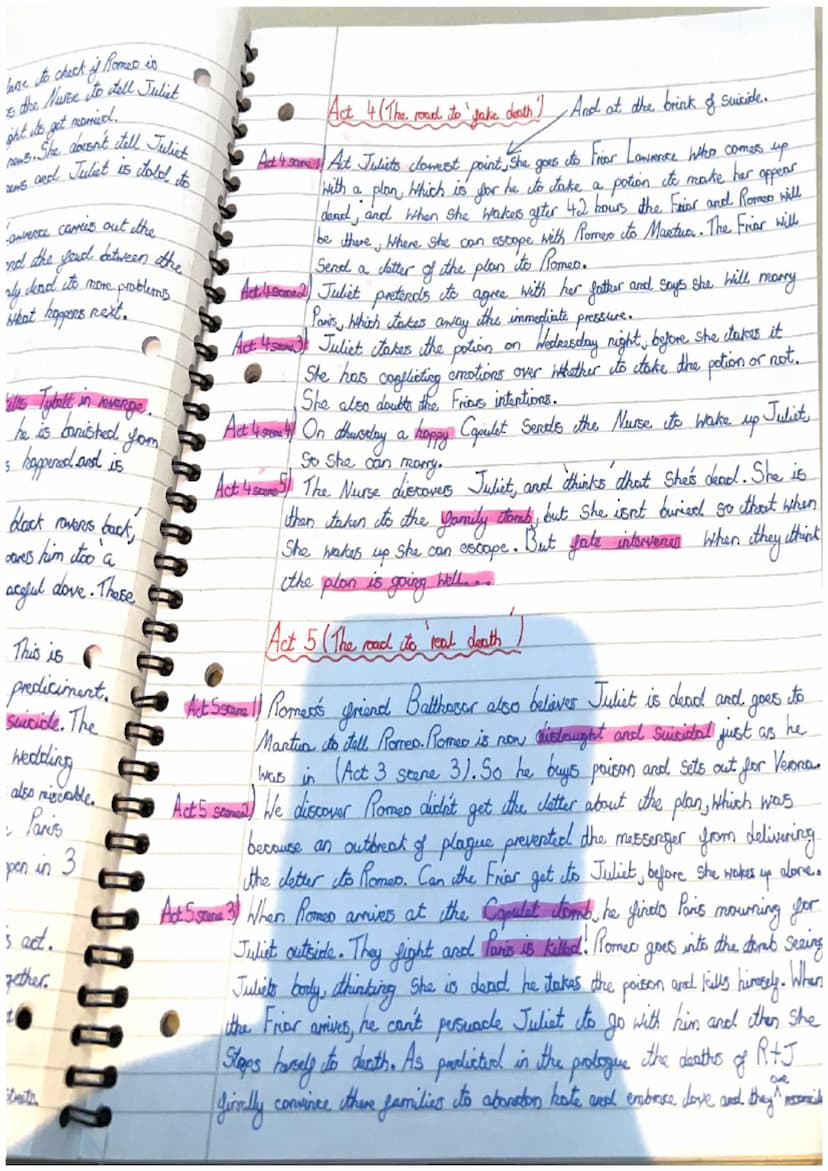 lane to check if Romeo is
s the Nurse to tell Juliet
ght to get married.
news. She doesn't tell Juliet
news and Juliet is told to
awrence carries out the
and the feud between the
nly lead to more problems
what happens next.
kills Tybalt in revenge.
he is banished from
s happened and is
black ravens back,'
pares him to 'a
aceful dove. These
This is
prediciment.
suicide. The
wedding
also miserable.
Paris
pen in 3
s act.
gether.
Act 4 (The road to 'fake death')
And at the brink of suicide.
Act 4 scene 1) At Juliets lowest point, she goes to Friar Lawrence who comes up
with a plan, which is for he to take a potion to make her appear
dead, and when she wakes after 42 hours the Friar and Romeo will
be there, where she can escape with Romeo to Mantua. The Friar will
send a letter of the plan to Romeo.
Act 4 scene 2) Juliet pretends to agree with her father and says she will marry
Paris, which takes away the immediate pressure.
Act 4 scene 3) Juliet takes the potion on Wednesday night, before she takes it
She has conflicting emotions over whether to take the potion or not.
She also doubts the Friars intentions.
Act 4 scene 4) On thursday a happy Capulet sends the Nurse to wake up Juliet,
So she can marry.
Act 4 scene 5) The Nurse discovers Juliet, and 'thinks' that she's dead. She is
then taken to the family tomb, but she isnt buried so that when
She wakes up she can escape. But fate intervenes when they think
the plan is going well...
Act 5 (The road to 'real death')
Act 5 scene 1) Romeo's friend Balthasar also believes Juliet is dead and goes to
Mantua to tell Romeo. Romeo is now distraught and suicidal just as he
was in (Act 3 scene 3). So he buys poison and sets out for Verona.
Act 5 scene 2) We discover Romeo didn't get the letter about the plan, which was
because an outbreak of plague prevented the messenger from delivering
the letter to Romeo. Can the Friar get to Juliet, before she wakes up alone.
Act 5 scene 3) When Romeo arrives at the Capulet tomb, he finds Paris mourning for
Juliet outside. They fight and Paris is killed! Romeo goes into the tomb seeing
Juliets body, thinking she is dead he takes the poison and kills himself. When
the Friar arrives, he can't persuade Juliet to go with him and then she
Stabs herself to death. As predicted in the prologue the deaths of R+J
finally convince there families to abandon hate and embrace love and they are reconcile